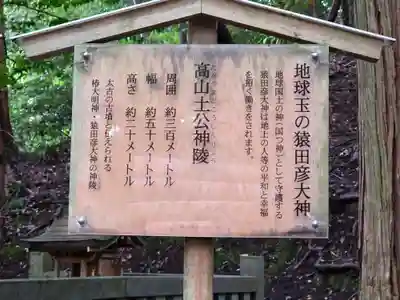 地球玉の猿田彦大神
地球国土の神（国つ神）として守護する
猿田彦大神は地上の人等の平和と幸福
を招く働きをされます。
高山土公神陵
周囲 約三百メートル
幅 約五十メートル
高さ 約二十メートル
太古の古墳と伝えられる
椿大明神・猿田彦大神の神陵